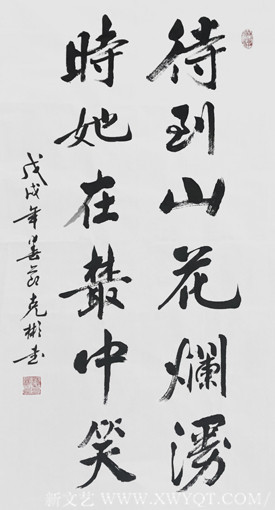 待到山花爛漫
時她在叢中笑
戊戌年春節克彬書
新文艺 WWW.XWYQT.COM